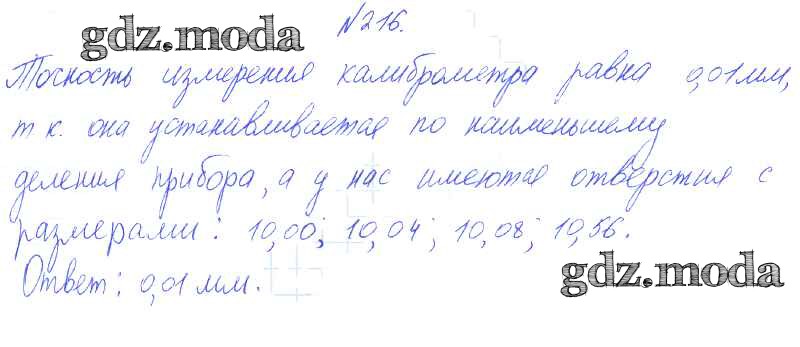 №216.
gdz.moda
Точность измерения калиброметра равна 0,01 мм,
т к. она устанавливается по наименьшему
деления прибора, а у нас имеются отверстия с
размерами: 10,00; 10,04; 10,08; 10,56.
Ответ: 0,01 мм.
gdz.moda